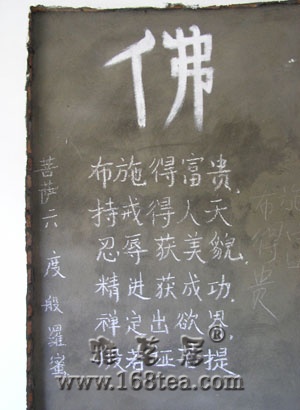 佛
布施得富贵,
持戒得人天
忍辱获美貌,
精进获成功,
禅定出欲
般若证菩提
菩萨六度般羅蜜
®
www.168tea.com